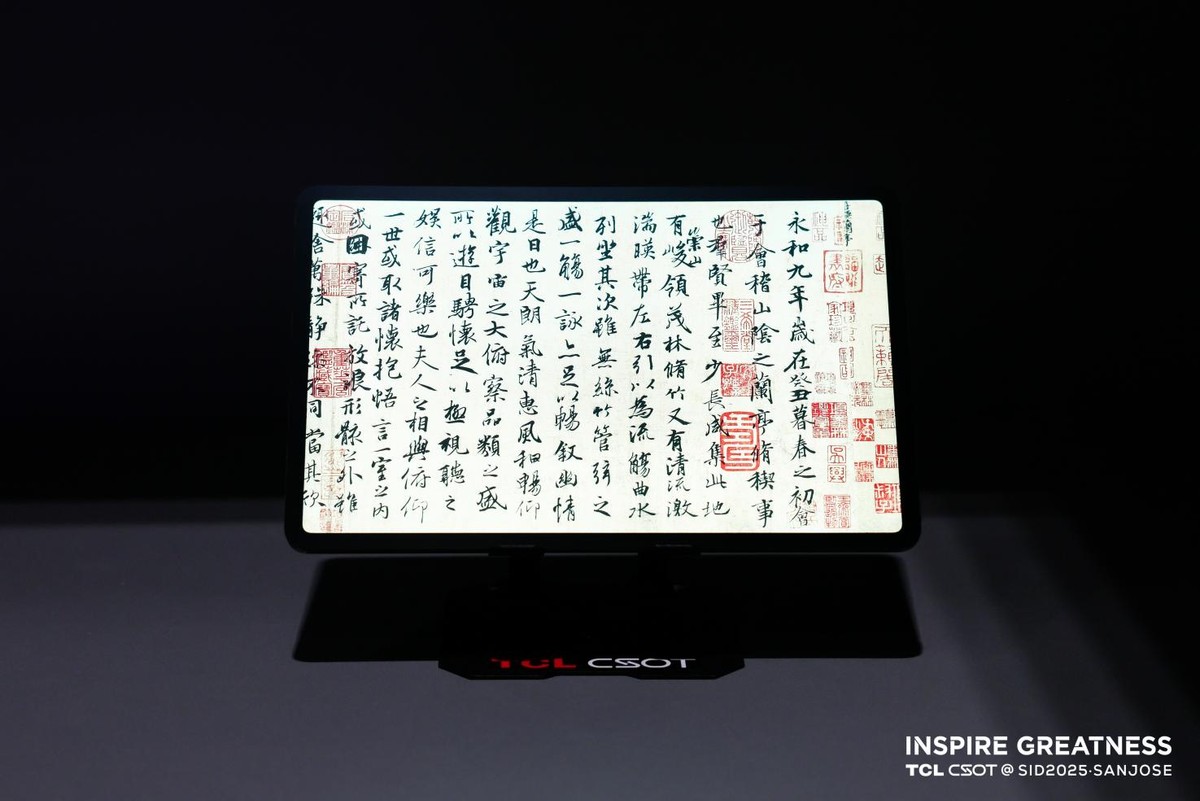 永和九年歲在癸丑暮春之初會
于會稽山陰之蘭亭脩稧事
也羣賢畢至少長咸集此地
有崇山峻領茂林脩竹又有清流激
湍暎帶左右引以為流觴曲水
列坐其次雖無絲竹管弦之
盛一觴一詠亦足以暢叙幽情
是日也天朗氣清惠風和暢仰
觀宇宙之大俯察品類之盛
所以遊目騁懷足以極視聽之
娛信可樂也夫人之相與俯仰
一世或取諸懷抱悟言一室之內
或因寄所託放浪形骸之外雖
趣舍萬殊靜躁不同當其欣
TCL CSOT
INSPIRE GREATNESS
TCL CSOT @ SID2025·SANJOSE